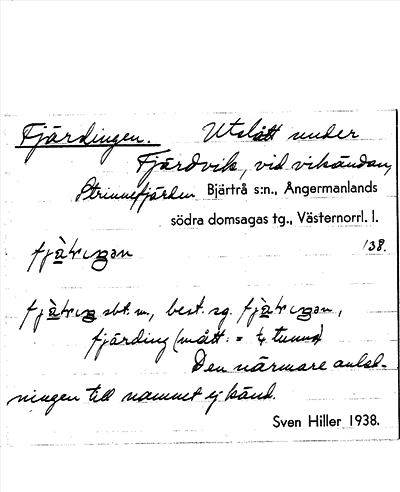 Fjärdingen. Utslått under
Fjärdvik, vid vikändan,
Strinnefjärden Bjärtrå s:n., Ångermanlands
södra domsagas tg., Västernorrl. l.
138.
sbt. m., best. sg.
fjärding (mått: = ¼ tunna)
Den närmare anled-
ningen till namnet ej känd.
Sven Hiller 1938.